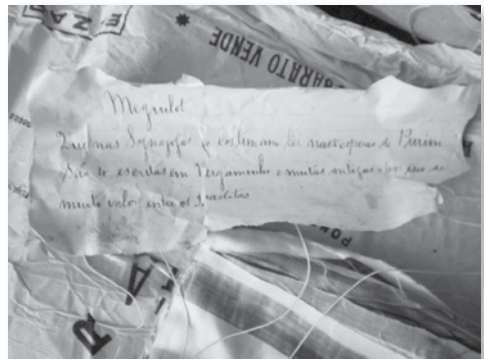 BARRATO VENDE
Meguilot
nas Synagogas se costumam ler nas vesperas de Purim
São escritas em Pergaminho e muitas antigas e por isso de
muito valor entre os Israelitas